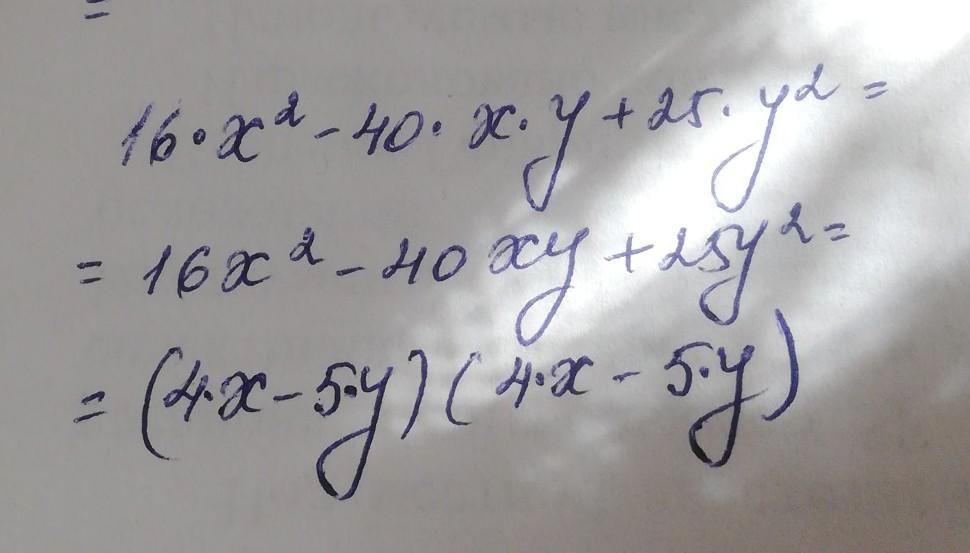 =
16·x² - 40·x·y + 25·y² =
= 16x² - 40xy + 25y² =
= (4·x - 5·y)(4·x - 5·y)